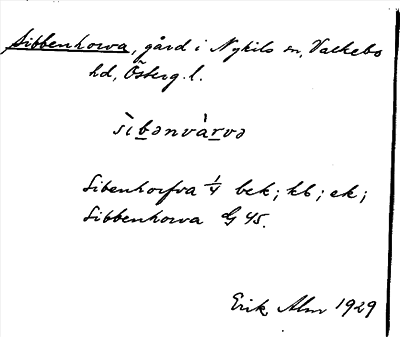 Sibbenhorva, gård i Nykils sn, Valkebo
hd, Österg. l.
sìb̲ənvàr̲və
Sibenhorfva 1/4 bek; kb; ek;
Sibbenhorva G 45.
Erik Alm 1929